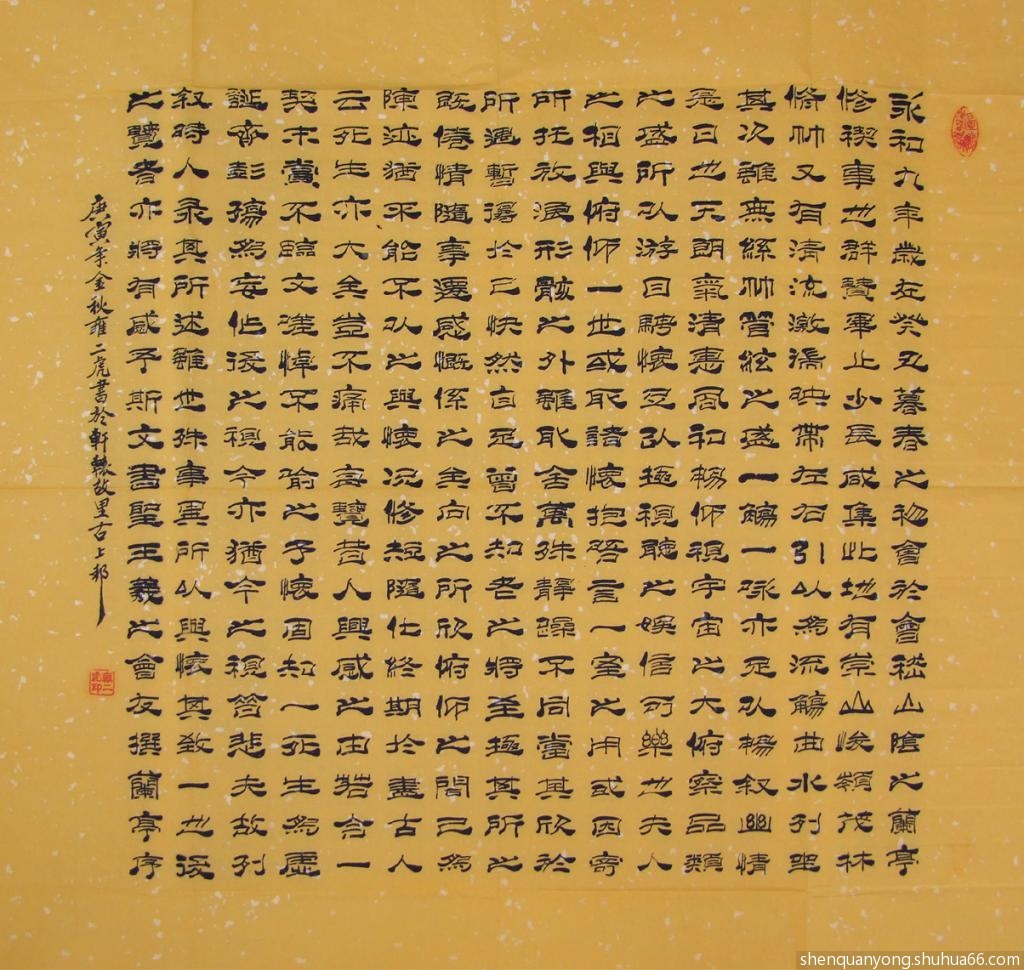 永和九年歲在癸丑暮春之初會於會稽山陰之蘭亭
修禊事也群賢畢止少長咸集此地有崇山峻嶺茂林
脩竹又有清流激湍映帶左右引以為流觴曲水列坐
其次雖無絲竹管絃之盛一觴一詠亦足以暢叙幽情
是日也天朗氣清惠風和暢仰視宇宙之大俯察品類
之盛所以游目騁懷足以極視聽之娛信可樂也夫人
之相與俯仰一世或取諸懷抱晤言一室之内或因寄
所托放浪形骸之外雖取舍萬殊靜躁不同當其欣於
所遇暫得於己快然自足曾不知老之將至極其所之
既倦情隨事遷感慨係之矣向之所欣俯仰之間已為
陳迹猶不能不以之興懷況修短隨化終期於盡古人
云死生亦大矣豈不痛哉每覽昔人興感之由若合一
契未嘗不臨文嗟悼不能喻之于懷固知一死生為虛
誕齊彭殤為妄作後之視今亦猶今之視昔悲夫故列
叙時人录其所述雖世殊事異所以興懷其致一也後
之覽者亦將有感于斯文書聖王羲之會友撰蘭亭序
庚寅年金秋雍二虎書於軒轅故里古上邽
雍二虎印
shenquanyong.shuhua66.com